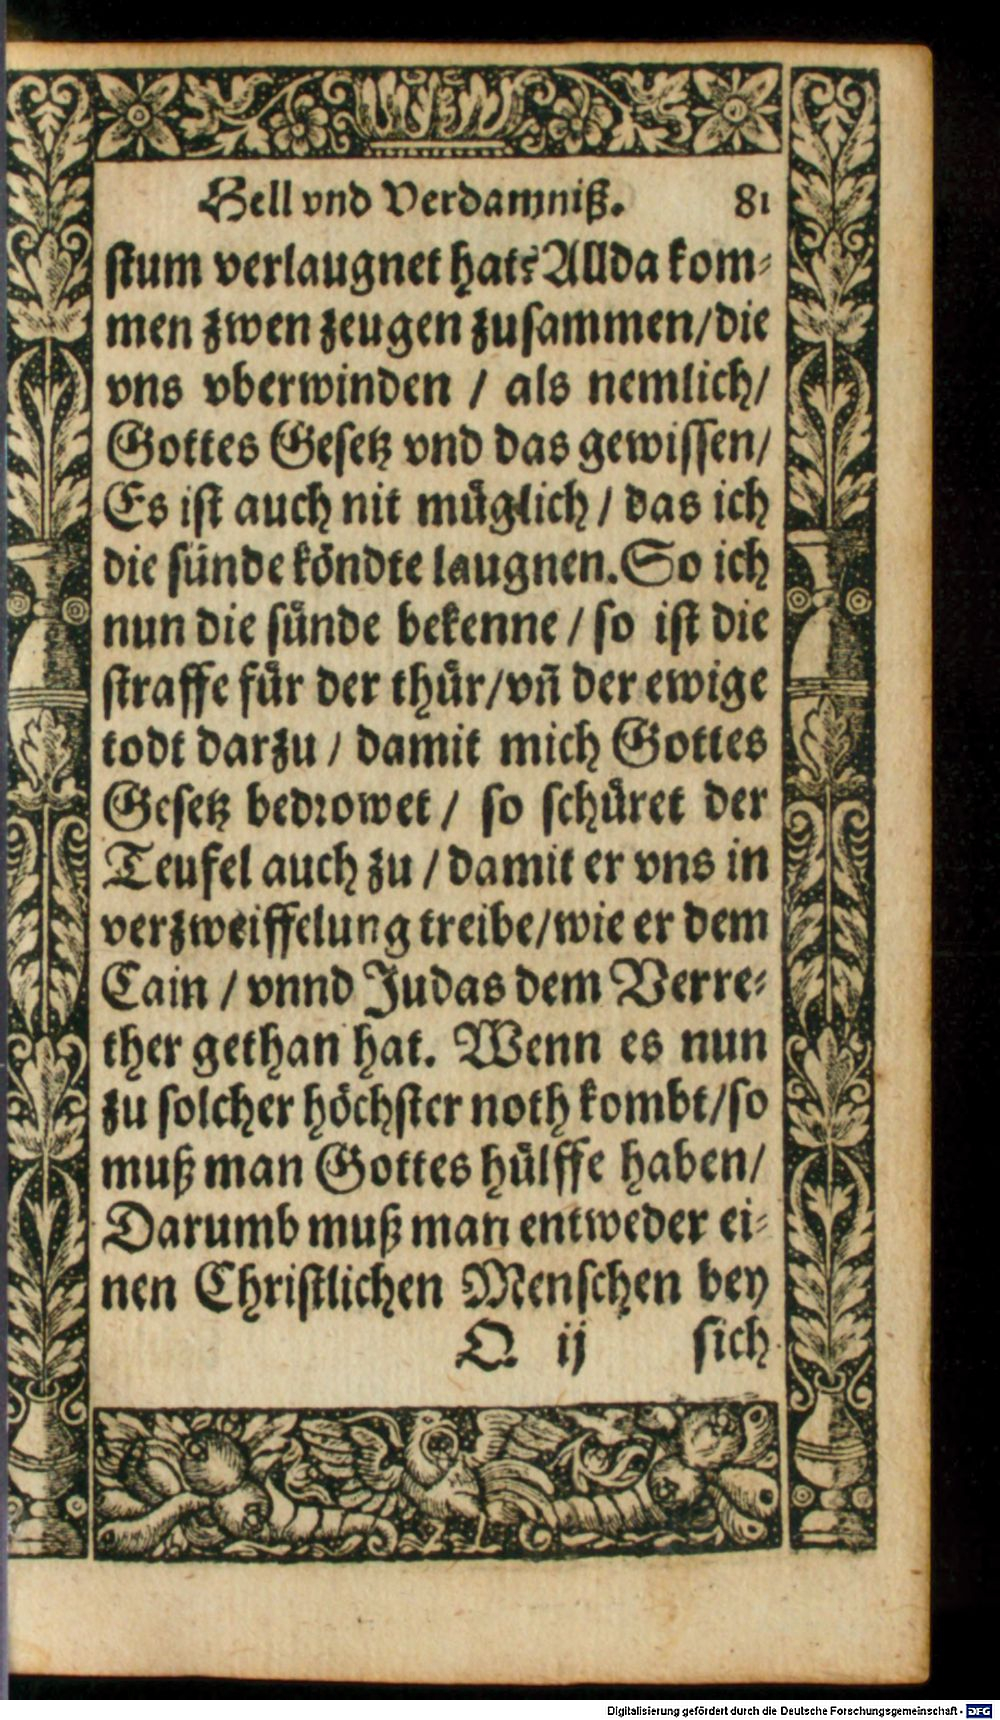 Hell vnd Verdamniß. 81
stum verlaugnet hat? Allda kom⸗
men zwen zeugen zusammen/die
vns vberwinden / als nemlich/
Gottes Gesetz vnd das gewissen/
Es ist auch nit müglich / das ich
die sünde köndte laugnen. So ich
nun die sünde bekenne / so ist die
straffe für der thür/vn̄ der ewige
todt darzu / damit mich Gottes
Gesetz bedrowet / so schüret der
Teufel auch zu / damit er vns in
verzweiffelung treibe/wie er dem
Cain / vnnd Judas dem Verre⸗
ther gethan hat. Wenn es nun
zu solcher höchster noth kombt/so
muß man Gottes hülffe haben/
Darumb muß man entweder ei⸗
nen Christlichen Menschen bey
Q ij sich
Digitalisierung gefördert durch die Deutsche Forschungsgemeinschaft - DFG